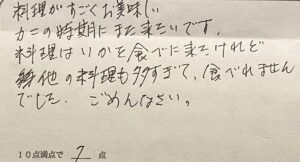 料理がすごくお美味しい
カニの時期にまた来たいです。
料理はいかを食べに来たけれど
他の料理も多すぎて、食べれません
でした。ごめんなさい。
10点満点で 7 点